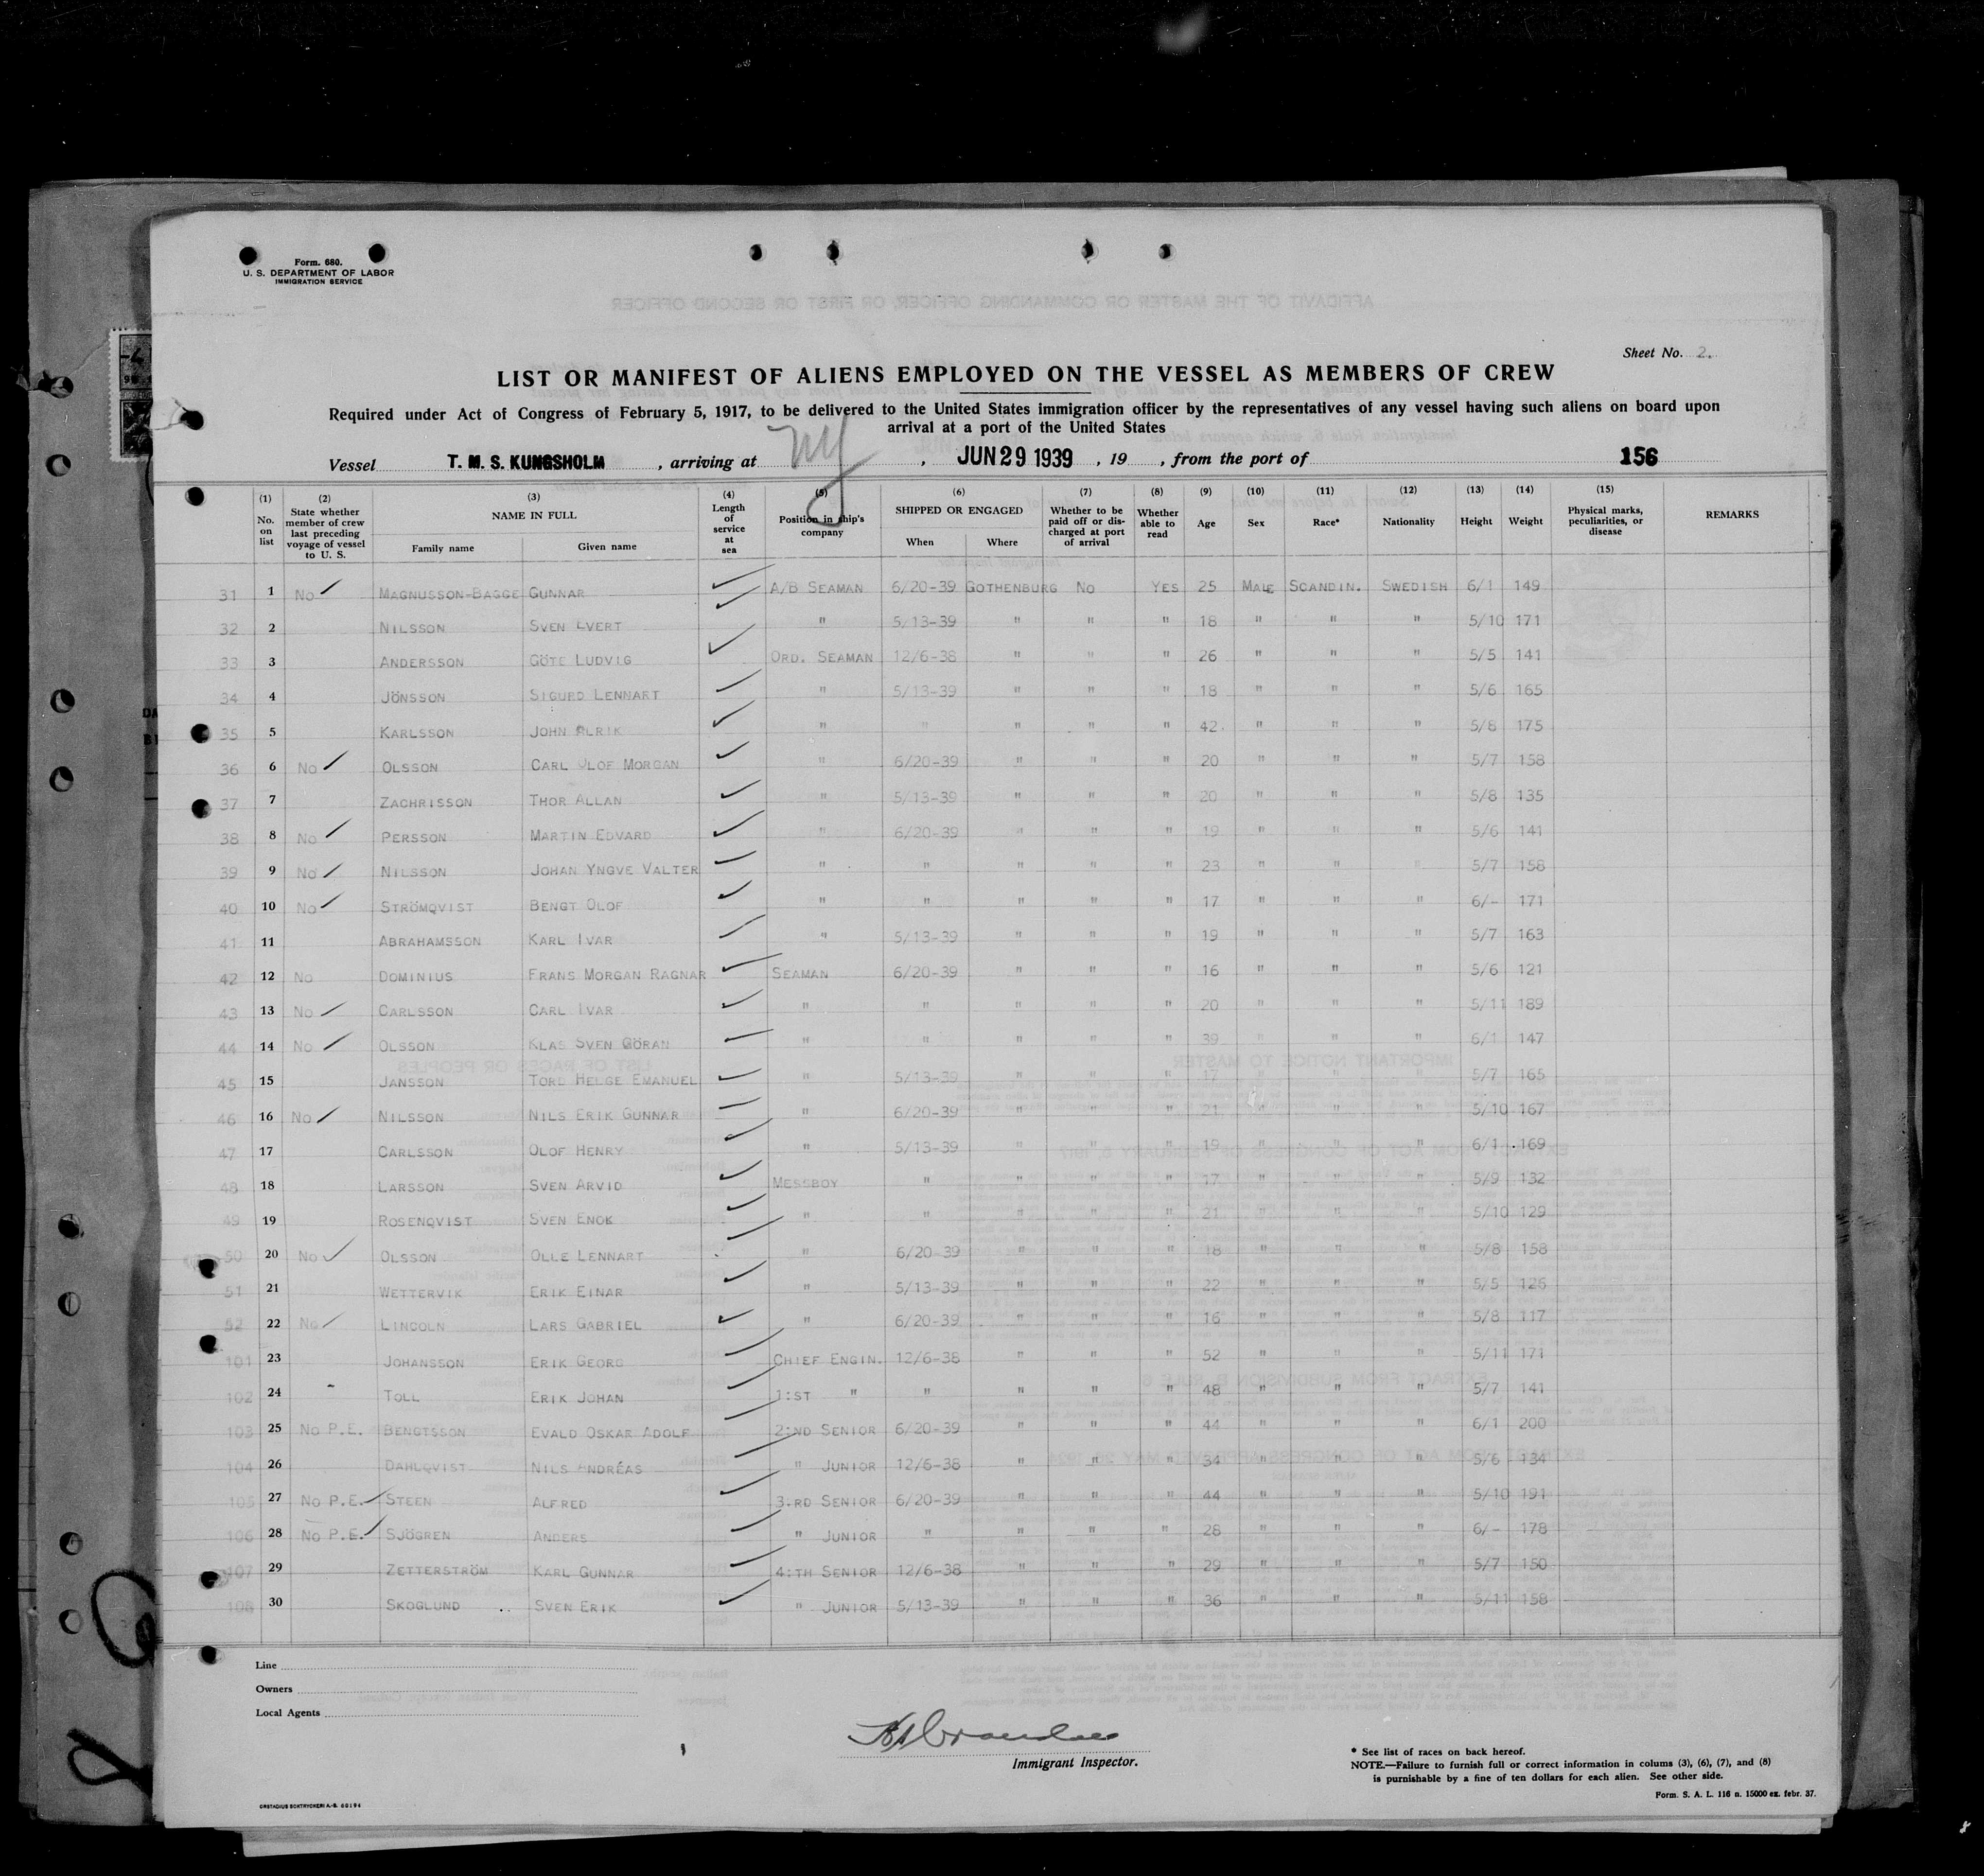 Form. 680.
U. S. DEPARTMENT OF LABOR
IMMIGRATION SERVICE
AFFIDAVIT OF THE MASTER OR COMMANDING OFFICER, OR FIRST OR SECOND OFFICER
Sheet No. 2.
LIST OR MANIFEST OF ALIENS EMPLOYED ON THE VESSEL AS MEMBERS OF CREW
Required under Act of Congress of February 5, 1917, to be delivered to the United States immigration officer by the representatives of any vessel having such aliens on board upon
arrival at a port of the United States
Vessel T. M. S. KUNGSHOLM , arriving at NY , JUN 29 1939 , 19 , from the port of 156
(1) No. on list (2) State whether member of crew last preceding voyage of vessel to U. S. (3) NAME IN FULL Family name Given name (4) Length of service at sea (5) Position in ship's company (6) SHIPPED OR ENGAGED When Where (7) Whether to be paid off or discharged at port of arrival (8) Whether able to read (9) Age (10) Sex (11) Race* (12) Nationality (13) Height (14) Weight (15) Physical marks, peculiarities, or disease REMARKS
31 1 No MAGNUSSON-BAGGE GUNNAR A/B SEAMAN 6/20-39 GOTHENBURG No YES 25 MALE SCANDIN. SWEDISH 6/1 149
32 2 NILSSON SVEN EVERT " 5/13-39 " " " 18 " " " 5/10 171
33 3 ANDERSSON GÖTE LUDVIG ORD. SEAMAN 12/6-38 " " " 26 " " " 5/5 141
34 4 JÖNSSON SIGURD LENNART " 5/13-39 " " " 18 " " " 5/6 165
35 5 KARLSSON JOHN ALRIK " " " " " 42 " " " 5/8 175
36 6 No OLSSON CARL OLOF MORGAN " 6/20-39 " " " 20 " " " 5/7 158
37 7 ZACHRISSON THOR ALLAN " 5/13-39 " " " 20 " " " 5/8 135
38 8 No PERSSON MARTIN EDVARD " 6/20-39 " " " 19 " " " 5/6 141
39 9 No NILSSON JOHAN YNGVE VALTER " " " " " 23 " " " 5/7 158
40 10 No STRÖMQVIST BENGT OLOF " " " " " 17 " " " 6/- 171
41 11 ABRAHAMSSON KARL IVAR " 5/13-39 " " " 19 " " " 5/7 163
42 12 No DOMINIUS FRANS MORGAN RAGNAR SEAMAN 6/20-39 " " " 16 " " " 5/6 121
43 13 No CARLSSON CARL IVAR " " " " " 20 " " " 5/11 189
44 14 No OLSSON KLAS SVEN GÖRAN " " " " " 39 " " " 6/1 147
45 15 JANSSON TORD HELGE EMANUEL " 5/13-39 " " " 17 " " " 5/7 165
46 16 No NILSSON NILS ERIK GUNNAR " 6/20-39 " " " 21 " " " 5/10 167
47 17 CARLSSON OLOF HENRY " 5/13-39 " " " 19 " " " 6/1 169
48 18 LARSSON SVEN ARVID MESSBOY " " " " 17 " " " 5/9 132
49 19 ROSENQVIST SVEN ENOK " " " " " 21 " " " 5/10 129
50 20 No OLSSON OLLE LENNART " 6/20-39 " " " 18 " " " 5/8 158
51 21 WETTERVIK ERIK EINAR " 5/13-39 " " " 22 " " " 5/5 126
52 22 No LINCOLN LARS GABRIEL " 6/20-39 " " " 16 " " " 5/8 117
101 23 JOHANSSON ERIK GEORG CHIEF ENGIN. 12/6-38 " " " 52 " " " 5/11 171
102 24 TOLL ERIK JOHAN 1:ST " " " " " 48 " " " 5/7 141
103 25 No P.E. BENGTSSON EVALD OSKAR ADOLF 2:ND SENIOR 6/20-39 " " " 44 " " " 6/1 200
104 26 DAHLQVIST NILS ANDRÉAS " JUNIOR 12/6-38 " " " 34 " " " 5/6 134
105 27 No P.E. STEEN ALFRED 3:RD SENIOR 6/20-39 " " " 44 " " " 5/10 191
106 28 No P.E. SJÖGREN ANDERS " JUNIOR " " " " 28 " " " 6/- 178
107 29 ZETTERSTRÖM KARL GUNNAR 4:TH SENIOR 12/6-38 " " " 29 " " " 5/7 150
108 30 SKOGLUND SVEN ERIK " JUNIOR 5/13-39 " " " 36 " " " 5/11 158
Line
Owners
Local Agents
Immigrant Inspector.
* See list of races on back hereof.
NOTE.—Failure to furnish full or correct information in colums (3), (6), (7), and (8)
is punishable by a fine of ten dollars for each alien. See other side.
Form. S. A. L. 116 n. 15000 ex. febr. 37.